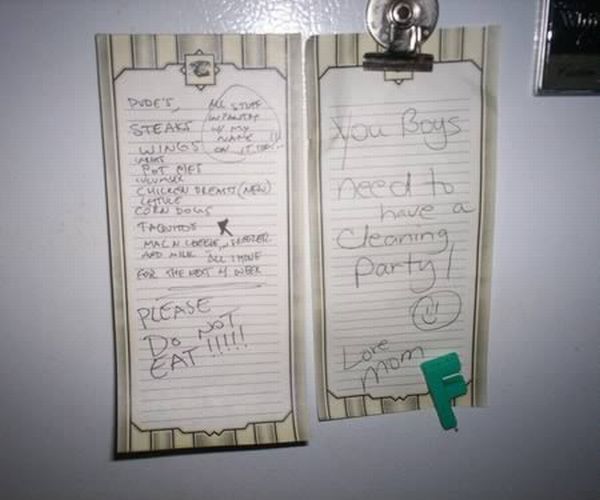 DUDE'S,
STEAKS
WINGS
POT PIES
CHICKEN BREASTS (NEW)
LETTUCE
CORN DOGS
TAQUITOS
MAC N CHEESE, IN FREEZER
AND MILK ALL I HAVE
FOR THE NEXT 4 WEEK
PLEASE
DO NOT
EAT !!!!!
ALL STUFF
IN PANTRY
W/ MY
NAME
ON IT
You Boys
need to
have a
Cleaning
party!
Love
Mom
F